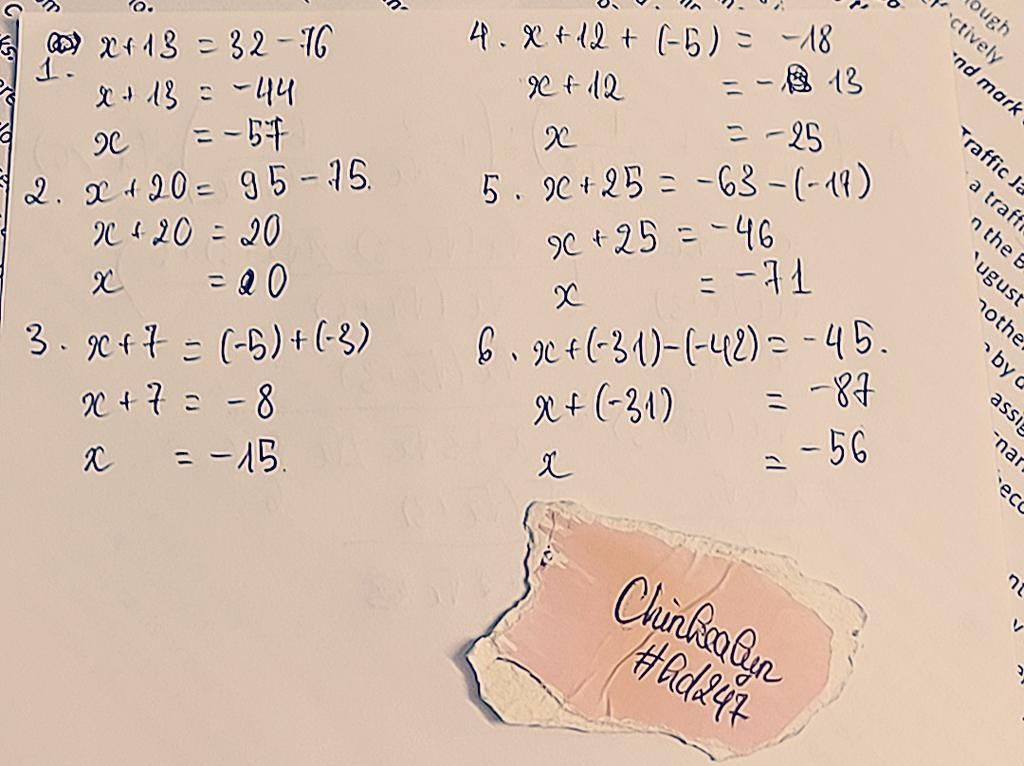 1. x+13 = 32-76
x+13 = -44
x = -57
2. x+20 = 95-75.
x+20 = 20
x = 20
3. x+7 = (-5)+(-3)
x+7 = -8
x = -15.
4. x+12+(-5) = -18
x+12 = -13
x = -25
5. x+25 = -63-(-17)
x+25 = -46
x = -71
6. x+(-31)-(-42) = -45.
x+(-31) = -87
x = -56
#hd247
ough
ctively
nd mark
Traffic Ja
a traffi
n the B
ugust
nothe
by d
assig
mar
ecc